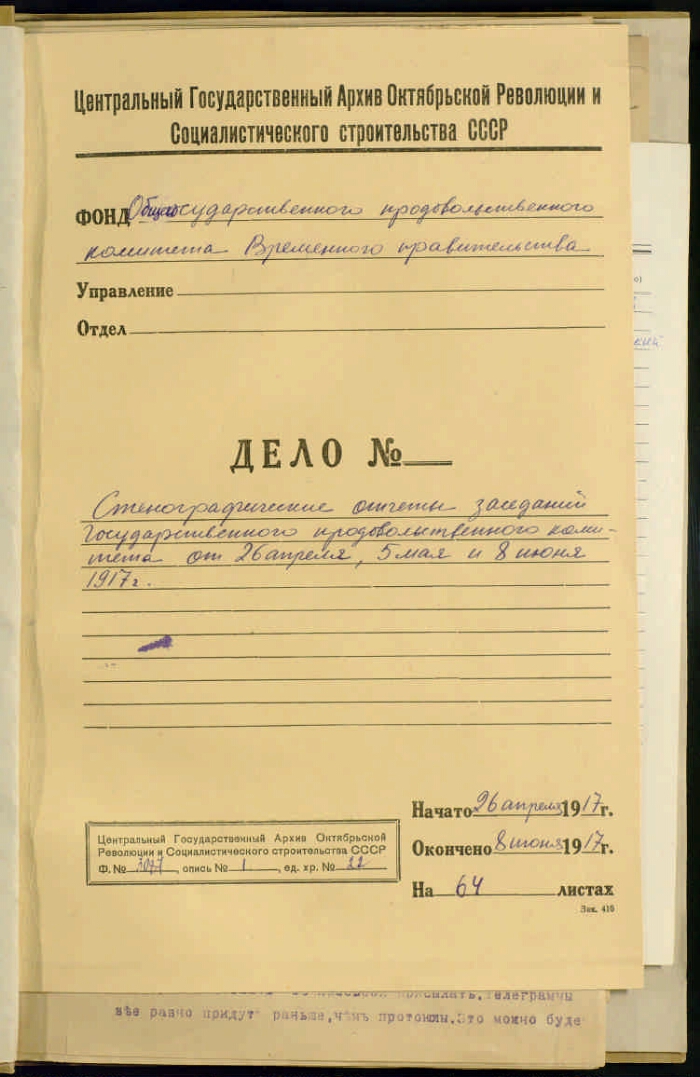 Центральный Государственный Архив Октябрьской Революции и
Социалистического строительства СССР
ФОНД Общегосударственного продовольственного
комитета Временного правительства
Управление
Отдел
ДЕЛО №
Стенографические отчеты заседаний
Государственного продовольственного коми-
тета от 26 апреля, 5 мая и 8 июня
1917 г.
Начато 26 апреля 1917 г.
Окончено 8 июня 1917 г.
На 64 листах
Зак. 416
Центральный Государственный Архив Октябрьской
Революции и Социалистического строительства СССР
Ф. №, опись № 1, ед. хр. № 22
присылать. Телеграммы
все равно придутъ раньше, чѣмъ протоколы. Это можно буде
кий